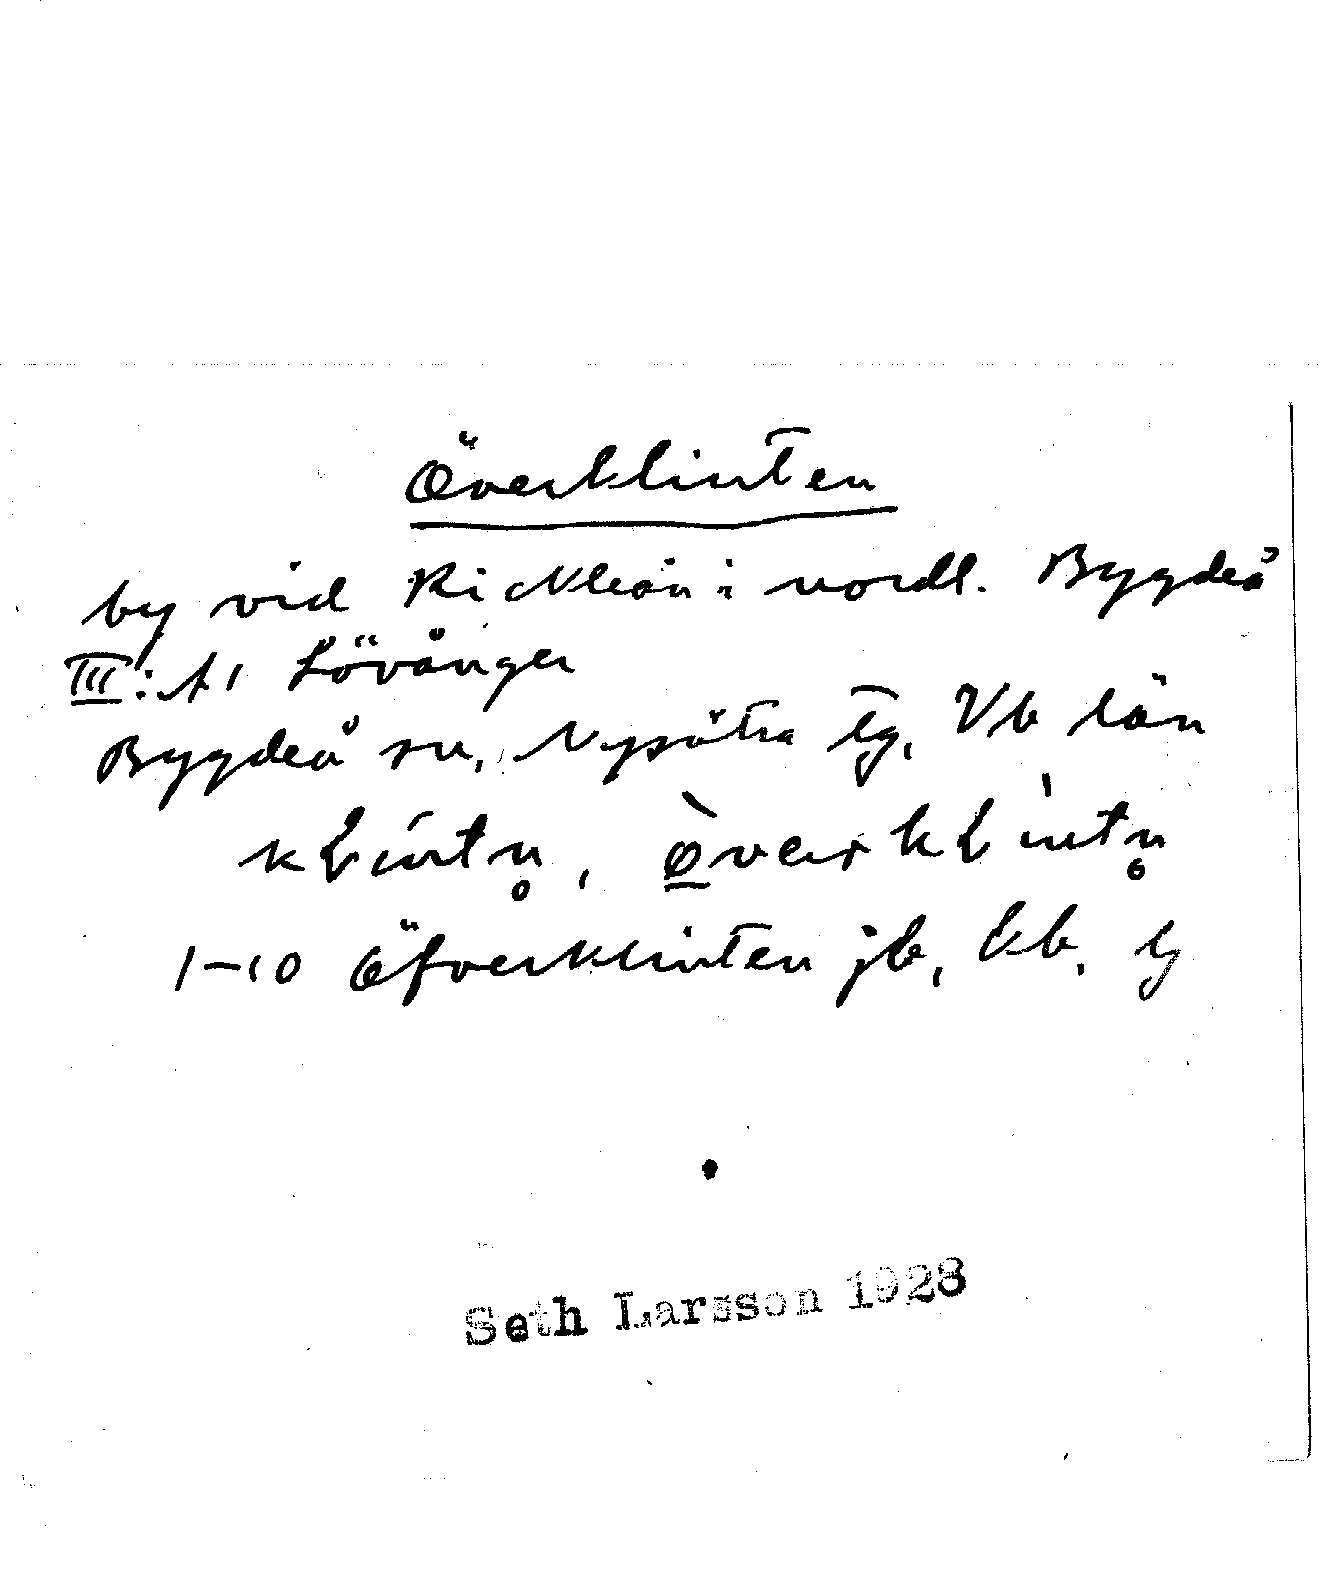 Överklinten
by vid Rickleån i nordl. Bygdeå
III: A1 Lövånger
Bygdeå sn, Nysätra tg, Vb län
kɫíntn̥, ø̀verkɫìntn̥
1-10 Öfverklinten jb, kb, lg
Seth Larsson 1928